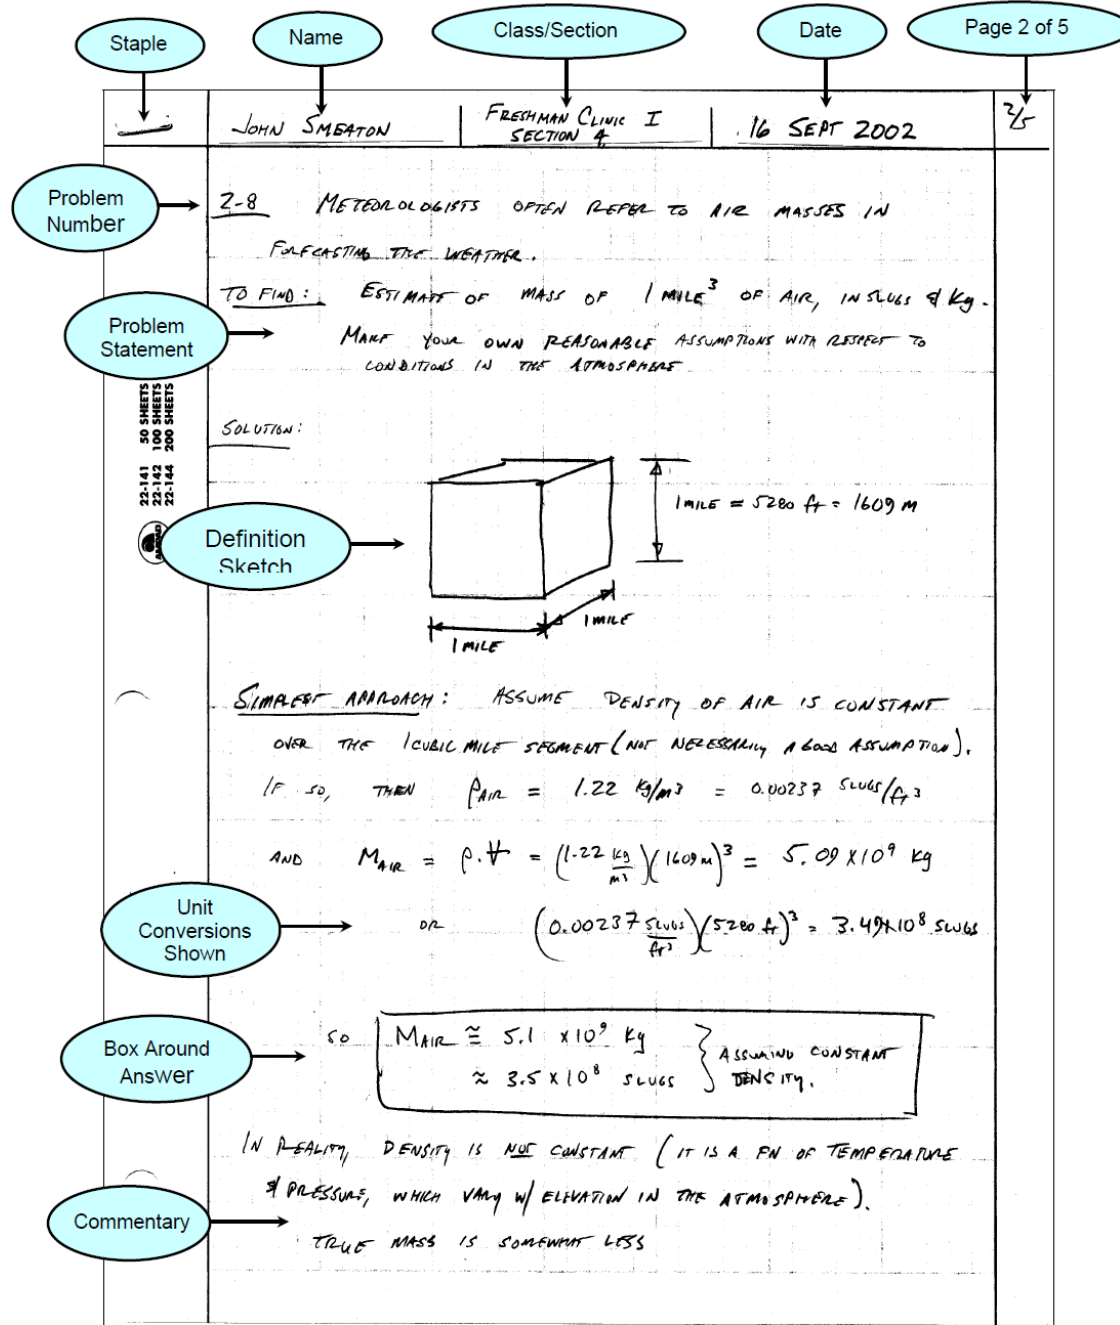 Staple
Name
Class/Section
Date
Page 2 of 5
JOHN SMEATON
FRESHMAN CLINIC I
SECTION 4
16 SEPT 2002
2/5
Problem
Number
2-8 METEOROLOGISTS OFTEN REFER TO AIR MASSES IN
FORECASTING THE WEATHER.
TO FIND: ESTIMATE OF MASS OF 1 MILE³ OF AIR, IN SLUGS & Kg.
Problem
Statement
MAKE YOUR OWN REASONABLE ASSUMPTIONS WITH RESPECT TO
CONDITIONS IN THE ATMOSPHERE
22-141 50 SHEETS
22-142 100 SHEETS
22-144 200 SHEETS
AMPAD
SOLUTION:
Definition
Sketch
1 MILE = 5280 ft = 1609 m
1 MILE
1 MILE
SIMPLEST APPROACH: ASSUME DENSITY OF AIR IS CONSTANT
OVER THE 1 CUBIC MILE SEGMENT (NOT NECESSARILY A GOOD ASSUMPTION).
IF SO, THEN ρAIR = 1.22 Kg/m³ = 0.00237 SLUGS/ft³
AND MAIR = ρ.V = (1.22 kg/m³)(1609 m)³ = 5.09 X10⁹ Kg
Unit
Conversions
Shown
OR (0.00237 SLUGS/ft³)(5280 ft)³ = 3.49X10⁸ SLUGS
Box Around
Answer
SO MAIR ≅ 5.1 X10⁹ Kg
≈ 3.5 X 10⁸ SLUGS } ASSUMING CONSTANT
DENSITY.
IN REALITY, DENSITY IS NOT CONSTANT (IT IS A FN OF TEMPERATURE
& PRESSURE, WHICH VARY W/ ELEVATION IN THE ATMOSPHERE).
Commentary
TRUE MASS IS SOMEWHAT LESS